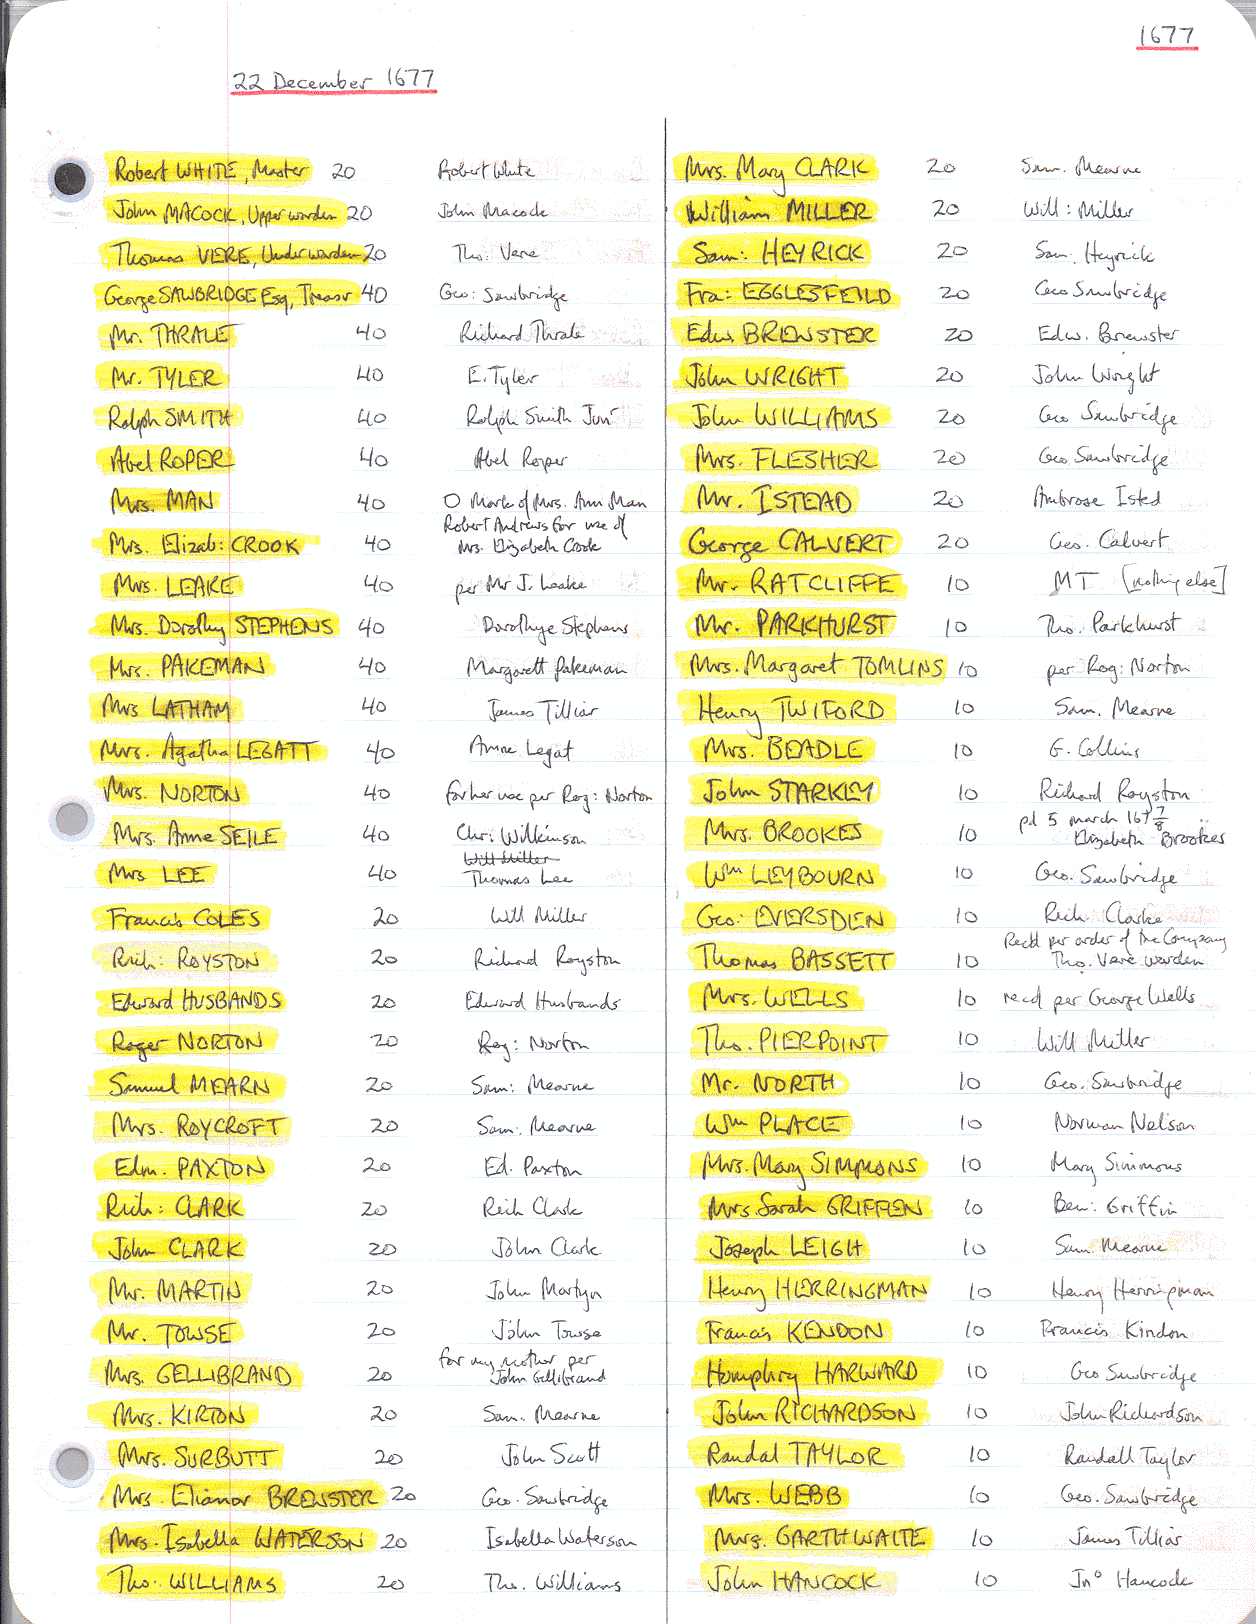 1677
22 December 1677
Robert WHITE, Master 20 Robert White
John MACOCK, Upper warden 20 John Macock
Thomas VERE, Underwarden 20 Tho: Vere
George SAWBRIDGE Esq, Treasr 40 Geo: Sawbridge
Mr. THRALE 40 Richard Thrale
Mr. TYLER 40 E. Tyler
Ralph SMITH 40 Ralph Smith Junr
Abel ROPER 40 Abel Roper
Mrs. MAN 40 O Mark of Mrs. Ann Man
Mrs. Elizab: CROOK 40 Robert Andrews for use of
Mrs. Elizabeth Crook
Mrs. LEAKE 40 per Mr J. Leake
Mrs. Dorothy STEPHENS 40 Dorothye Stephens
Mrs. PAKEMAN 40 Margarett Pakeman
Mrs LATHAM 40 James Tilliar
Mrs. Agatha LEGATT 40 Anne Legat
Mrs. NORTON 40 for her use per Rog: Norton
Mrs. Anne SEILE 40 Chr: Wilkinson
Mrs LEE 40 Will Miller
Thomas Lee
Francis COLES 20 Will Miller
Rich: ROYSTON 20 Richard Royston
Edward HUSBANDS 20 Edward Husbands
Roger NORTON 20 Rog: Norton
Samuel MEARN 20 Sam: Mearne
Mrs. ROYCROFT 20 Sam: Mearne
Edm. PAXTON 20 Ed. Paxton
Rich: CLARK 20 Rich Clark
John CLARK 20 John Clark
Mr. MARTIN 20 John Martyn
Mr. TOWSE 20 John Towse
Mrs. GELLIBRAND 20 for my mother per
John Gellibrand
Mrs. KIRTON 20 Sam. Mearne
Mrs. SURBUTT 20 John Scott
Mrs. Elianor BREWSTER 20 Geo. Sawbridge
Mrs. Isabella WATERSON 20 Isabella Waterson
Tho: WILLIAMS 20 Tho. Williams
Mrs. Mary CLARK 20 Sam. Mearne
William MILLER 20 Will: Miller
Sam: HEYRICK 20 Sam. Heyrick
Fra: EGGLESFEILD 20 Geo Sawbridge
Edw. BREWSTER 20 Edw. Brewster
John WRIGHT 20 John Wright
John WILLIAMS 20 Geo Sawbridge
Mrs. FLESHER 20 Geo Sawbridge
Mr. ISTEAD 20 Ambrose Isted
George CALVERT 20 Geo. Calvert
Mr. RATCLIFFE 10 MT [nothing else]
Mr. PARKHURST 10 Tho. Parkhurst
Mrs. Margaret TOMLINS 10 per Rog: Norton
Henry TWIFORD 10 Sam. Mearne
Mrs. BEADLE 10 G. Collins
John STARKEY 10 Richard Royston
Mrs. BROOKES 10 pd 5 march 167 7/8
Elizabeth Brookes
Wm LEYBOURN 10 Geo. Sawbridge
Geo: EVERSDEN 10 Rich Clarke
Thomas BASSETT 10 Recd per order of the Company
Tho. Vere warden
Mrs. WELLS 10 recd per George Wells
Tho. PIERPOINT 10 Will Miller
Mr. NORTH 10 Geo. Sawbridge
Wm PLACE 10 Norman Nelson
Mrs. Mary SIMMONS 10 Mary Simmons
Mrs Sarah GRIFFEN 10 Ben: Griffin
Joseph LEIGH 10 Sam. Mearne
Henry HERRINGMAN 10 Henry Herringman
Francis KENDON 10 Francis Kindon
Humphry HARWARD 10 Geo Sawbridge
John RICHARDSON 10 John Richardson
Randal TAYLOR 10 Randall Taylor
Mrs. WEBB 10 Geo. Sawbridge
Mrs. GARTHWAITE 10 James Tilliar
John HANCOCK 10 Jno Hancock